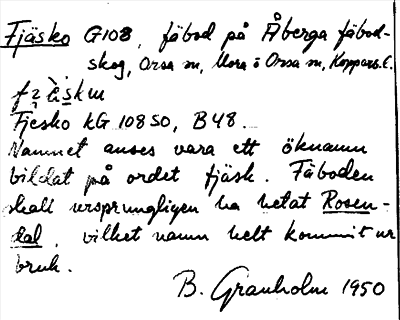 Fjäsko G108, fäbod på Åberga fäbod-
skog, Orsa sn, Mora o Orsa sn, Koppars. l.
Fjesko KG 108 SO, B48.
Namnet anses vara ett öknamn
bildat på ordet fjäsk. Fäboden
skall ursprungligen ha hetat Rosen-
dal, vilket namn helt kommit ur
bruk.
B. Granholm 1950